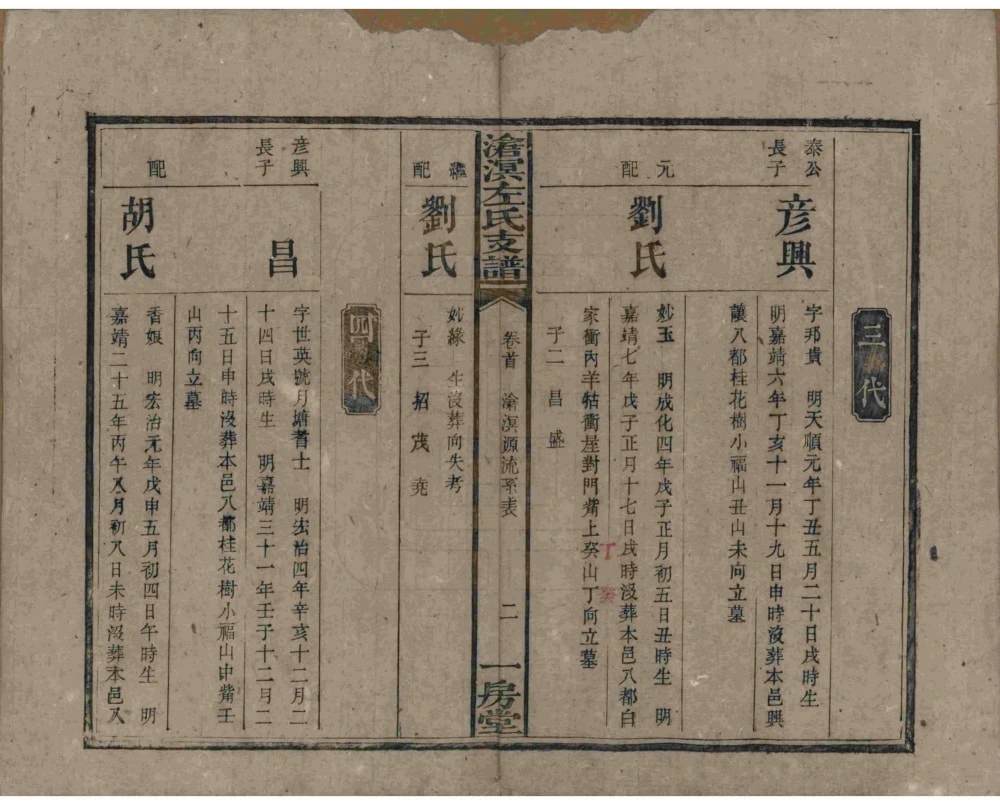 三代
泰公
長子
彥興
字邦貴　明天順元年丁丑五月二十日戌時生
明嘉靖六年丁亥十一月十九日申時沒葬本邑興
讓八都桂花樹小福山丑山未向立墓
元配
劉氏
妙玉　明成化四年戊子正月初五日丑時生　明
嘉靖七年戊子正月十七日戌時沒葬本邑八都白
家衝內羊牯衝屋對門觜上癸山丁向立墓
丁癸
子二　昌　盛
繼配
劉氏
妙緣　生沒葬向失考
子三　招　茂　堯
滄溟左氏支譜
卷首　滄溟源流系表　二
一房堂
四代
彥興
長子
昌
字世英號月塘耆士　明宏治四年辛亥十二月二
十四日戌時生　明嘉靖三十一年壬子十二月二
十五日申時沒葬本邑八都桂花樹小福山申觜壬
山丙向立墓
配
胡氏
香娘　明宏治元年戊申五月初四日午時生　明
嘉靖二十五年丙午八月初八日未時沒葬本邑八